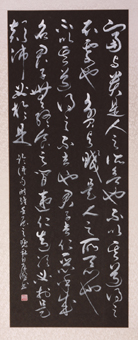 富與貴是人之所欲也不以其道得之
不處也貧與賤是人之所惡也
不以其道得之不去也君子去仁惡乎成
名君子無終食之間違仁造次必於是
顛沛必於是